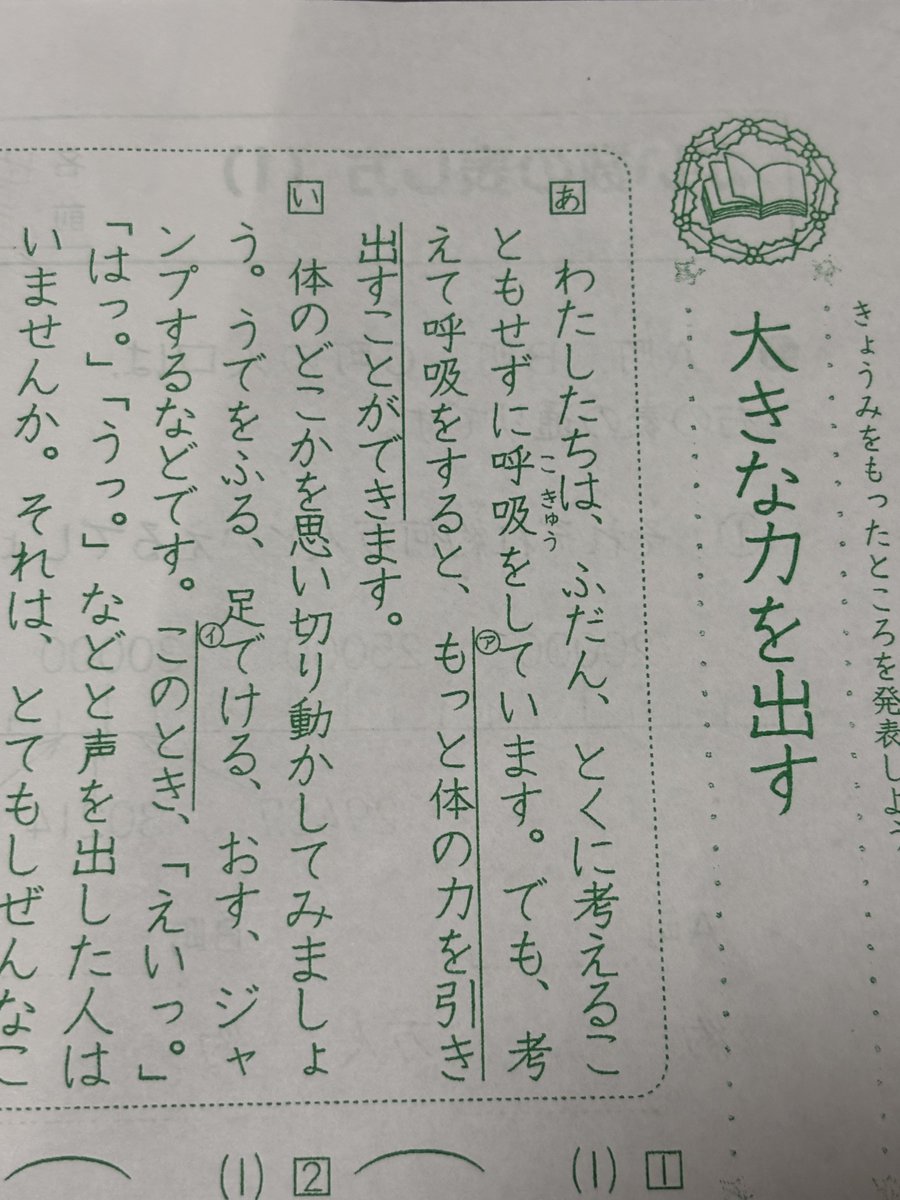 きょうみをもったところを発表しよう
大きな力を出す
あ
わたしたちは、ふだん、とくに考えるこ
ともせずに呼吸をしています。でも、考
こきゅう
えて呼吸をすると、もっと体の力を引き
ア
出すことができます。
い
体のどこかを思い切り動かしてみましょ
う。うでをふる、足でける、おす、ジャ
ンプするなどです。このとき、「えいっ。」
イ
「はっ。」「うっ。」などと声を出した人は
いませんか。それは、とてもしぜんなこ
1
(1)
2
(1)